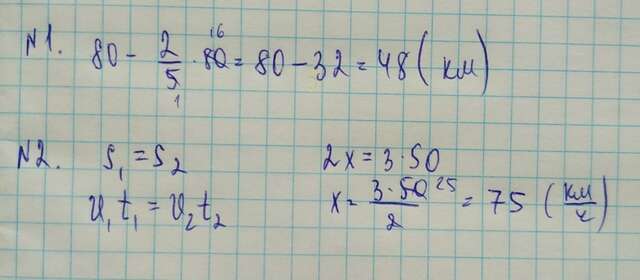 №1. 80 - 2/5 · 80 16 1 = 80 - 32 = 48 (км)
№2. S₁ = S₂ 2x = 3·50
v₁t₁ = v₂t₂ x = 3·50 25 / 2 = 75 (км/ч)